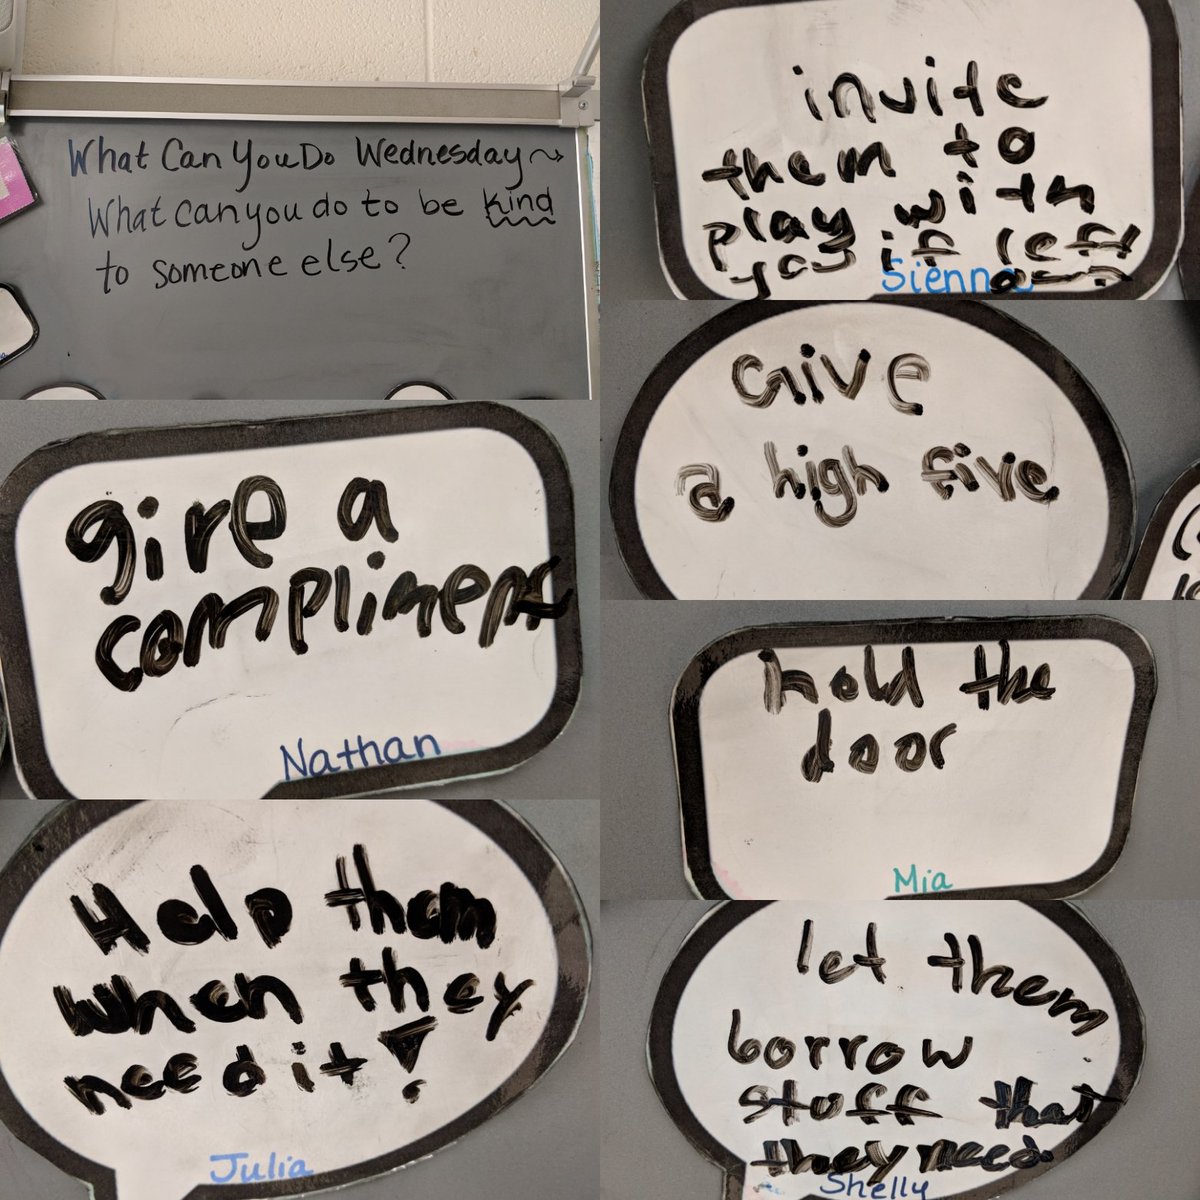 What Can You Do Wednesday
What can you do to be kind
to someone else?
invite
them to
play with
you if left
Sienna
Give
a high five
give a
compliment
Nathan
hold the
door
Mia
Help them
when they
need it!
Julia
let them
borrow
stuff that
they need
Shelly